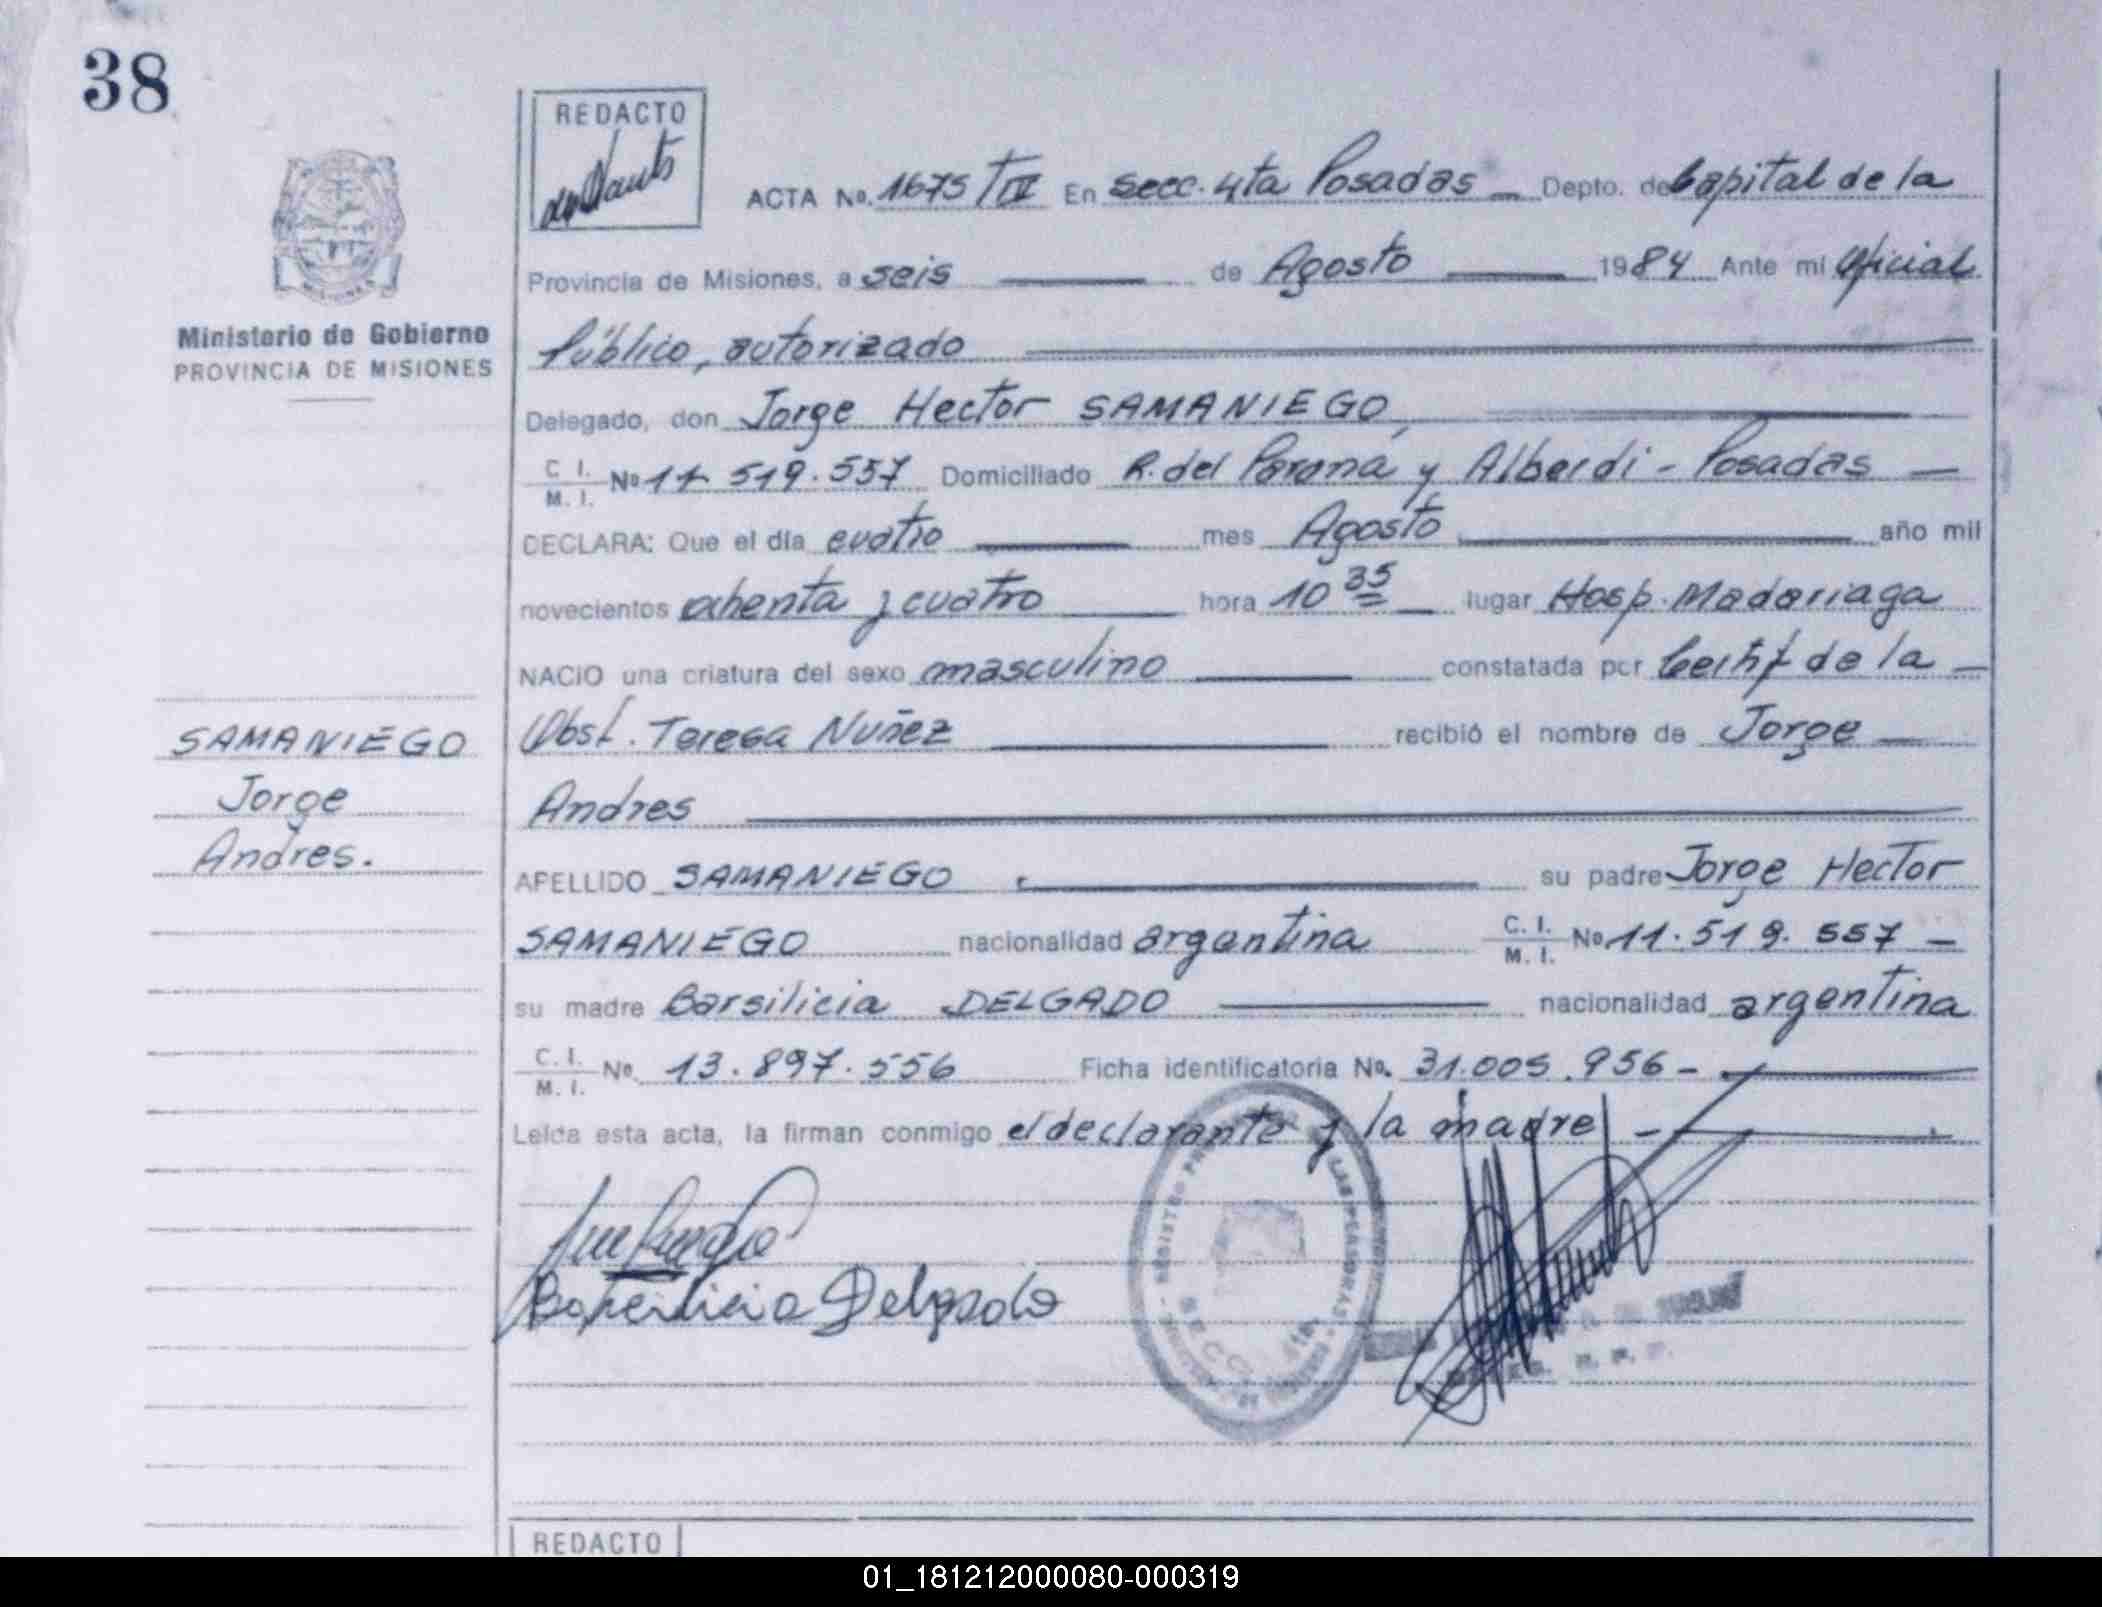 38
REDACTO
ACTA No. 1675/TIV En Secc. 4ta Posadas Depto. de Capital de la
Provincia de Misiones, a seis de Agosto 1984 Ante mi Oficial
Ministerio de Gobierno
PROVINCIA DE MISIONES
Público, autorizado
Delegado, don Jorge Hector SAMANIEGO,
C. I. M. I. No 11.519.557 Domiciliado R. del Paraná y Alberdi - Posadas
DECLARA: Que el día cuatro mes Agosto año mil
novecientos ochenta y cuatro hora 10 35 lugar Hosp. Madariaga
NACIO una criatura del sexo masculino constatada por Certif de la
Obst. Teresa Nuñez recibió el nombre de Jorge
Andres
SAMANIEGO
Jorge
Andres.
APELLIDO SAMANIEGO su padre Jorge Hector
SAMANIEGO nacionalidad argentina C. I. M. I. No 11.519.557 -
su madre Barsilicia DELGADO nacionalidad argentina
C. I. M. I. No. 13.897.556 Ficha identificatoria No. 31.005.956 -
Leída esta acta, la firman conmigo el declarante y la madre -
Delgado
REDACTO
01_181212000080-000319